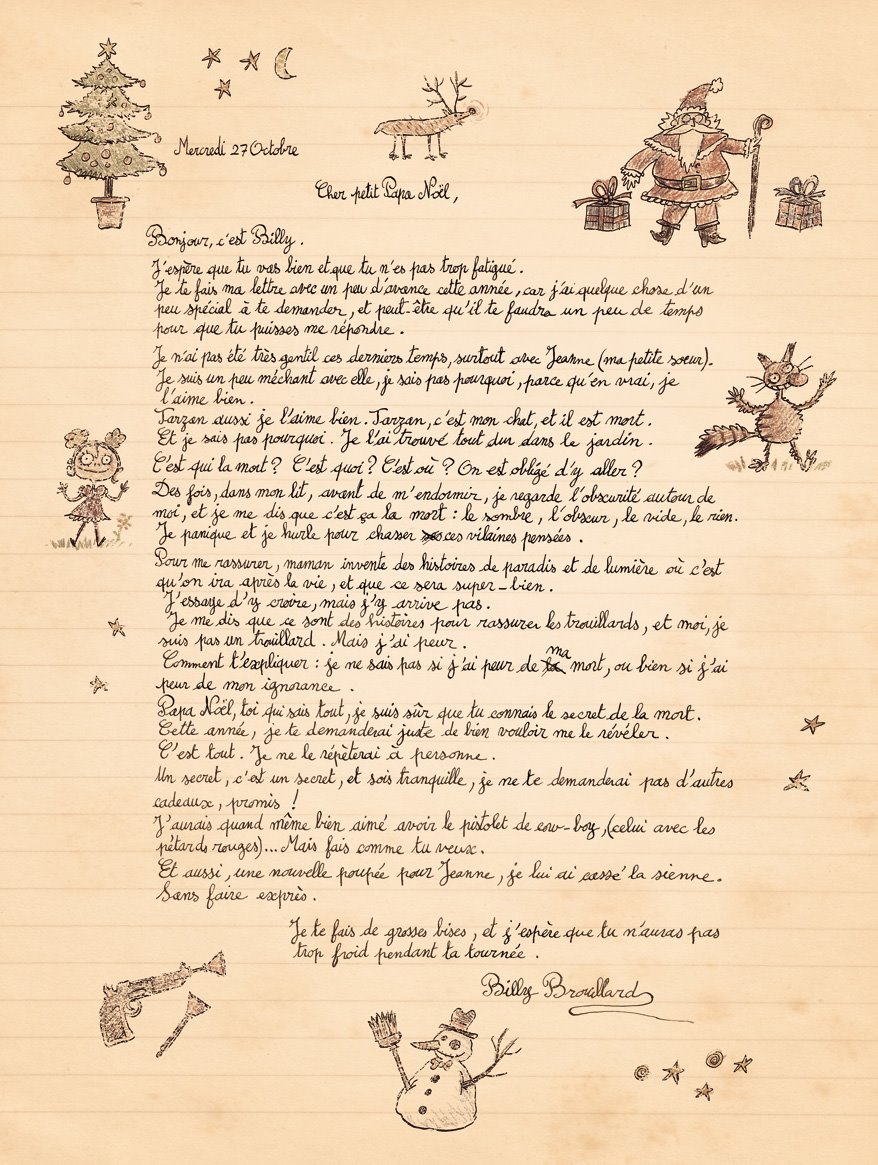 Mercredi 27 Octobre
Cher petit Papa Noël,
Bonjour, c'est Billy.
J'espère que tu vas bien et que tu n'es pas trop fatigué.
Je te fais ma lettre avec un peu d'avance cette année, car j'ai quelque chose d'un
peu spécial à te demander, et peut-être qu'il te faudra un peu de temps
pour que tu puisses me répondre.
Je n'ai pas été très gentil ces derniers temps, surtout avec Jeanne (ma petite soeur).
Je suis un peu méchant avec elle, je sais pas pourquoi, parce qu'en vrai, je
l'aime bien.
Tarzan aussi je l'aime bien. Tarzan, c'est mon chat, et il est mort.
Et je sais pas pourquoi. Je l'ai trouvé tout dur dans le jardin.
C'est qui la mort ? C'est quoi ? C'est où ? On est obligé d'y aller ?
Des fois, dans mon lit, avant de m'endormir, je regarde l'obscurité autour de
moi, et je me dis que c'est ça la mort : le sombre, l'obscur, le vide, le rien.
Je panique et je hurle pour chasser ces vilaines pensées.
Pour me rassurer, maman invente des histoires de paradis et de lumière où c'est
qu'on ira après la vie, et que ce sera super-bien.
J'essaye d'y croire, mais j'y arrive pas.
Je me dis que ce sont des histoires pour rassurer les trouillards, et moi, je
suis pas un trouillard. Mais j'ai peur.
Comment t'expliquer : je ne sais pas si j'ai peur de ma mort, ou bien si j'ai
peur de mon ignorance.
Papa Noël, toi qui sais tout, je suis sûr que tu connais le secret de la mort.
Cette année, je te demanderai juste de bien vouloir me le révéler.
C'est tout. Je ne le répèterai à personne.
Un secret, c'est un secret, et sois tranquille, je ne te demanderai pas d'autres
cadeaux, promis !
J'aurais quand même bien aimé avoir le pistolet de cow-boy, (celui avec les
pétards rouges)... Mais fais comme tu veux.
Et aussi, une nouvelle poupée pour Jeanne, je lui ai cassé la sienne.
Sans faire exprès.
Je te fais de grosses bises, et j'espère que tu n'auras pas
trop froid pendant ta tournée.
Billy Brouillard